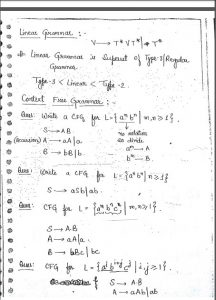 Linear Grammar :-
V → T* V T* | T*
Linear Grammar is Superset of Type-3/Regular
Grammar
Type-3 < Linear < Type-2
Context Free Grammar :-
Ques: Write a CFG for L = {aᵐbⁿ | m,n ≥ 1}.
S → AB
(Recursion) A → aA | a
B → bB | b
no relation
so divide
aᵐ → A
bⁿ → B
Ques: Write a CFG for L = {aⁿbⁿ | n ≥ 1}
S → aSb | ab
Ques: CFG for L = {aᵐ bⁿ cⁿ | m,n ≥ 1}.
S → AB
A → aA | a
B → bBc | bc
Ques: CFG for L = {aⁱ bⁱ⁺ʲ cʲ | i,j ≥ 1}.
S → AB
A → aAb | ab